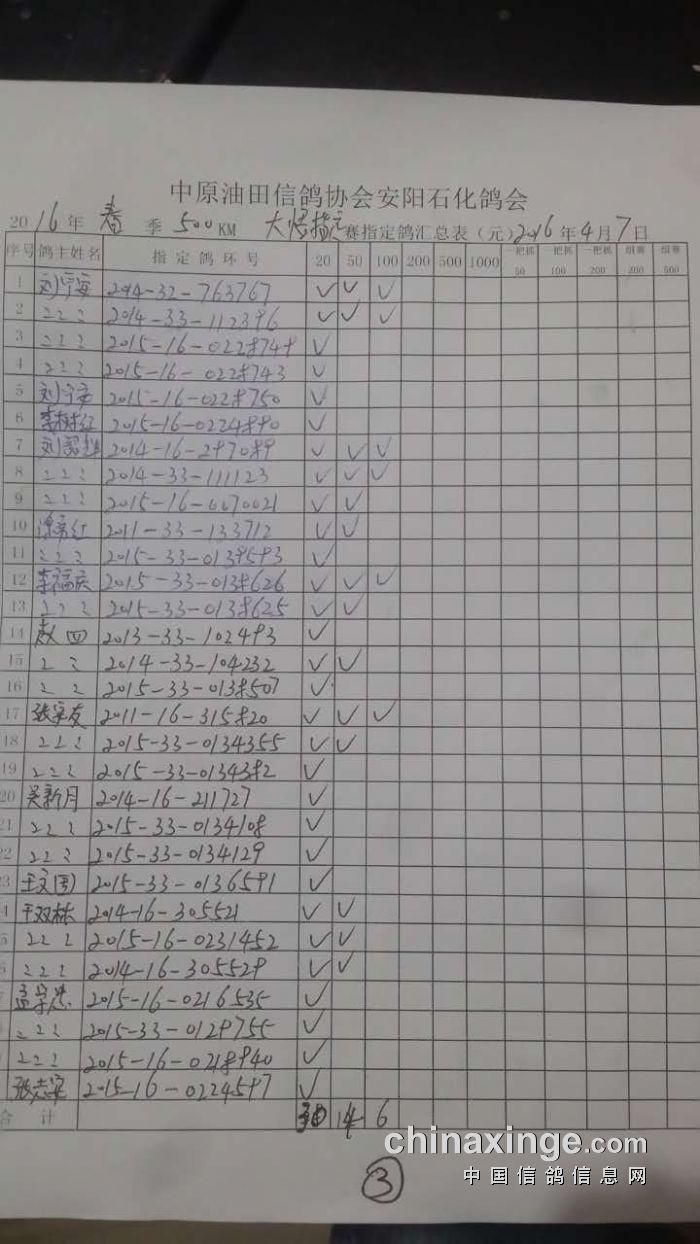 中原油田信鸽协会安阳石化鸽会
2016年 春 季 500KM 大 指定赛指定鸽汇总表（元）2016年4月7日
序号 鸽主姓名 指定鸽环号 20 50 100 200 500 1000 一把抓50 一把抓100 一把抓200 组赛200 组赛500
1 刘宇安 2014-32-763767 ✓ ✓ ✓
2 〃 2014-33-112896 ✓ ✓ ✓
3 〃 2015-16-0228748 ✓
4 〃 2015-16-0228743 ✓
5 刘宇安 2015-16-0228750 ✓
6 李树红 2015-16-0224890 ✓
7 刘 2014-16-297089 ✓ ✓ ✓
8 〃 2014-33-111123 ✓ ✓ ✓
9 〃 2015-16-0070021 ✓ ✓
10 红 2011-33-133712 ✓ ✓
11 〃 2015-33-0138593 ✓
12 李福庆 2015-33-0138626 ✓ ✓ ✓
13 〃 2015-33-0138625 ✓ ✓
14 赵四 2013-33-102493 ✓
15 〃 2014-33-104232 ✓ ✓
16 〃 2015-33-0138507 ✓
17 张家友 2011-16-315820 ✓ ✓ ✓
18 〃 2015-33-0134355 ✓ ✓
19 〃 2015-33-0134382 ✓
20 吴新月 2014-16-211727 ✓
21 〃 2015-33-0134108 ✓
22 〃 2015-33-0134129 ✓
23 王文国 2015-33-0136591 ✓
4 于双栋 2014-16-305521 ✓ ✓
5 〃 2015-16-0231452 ✓ ✓
6 〃 2014-16-305529 ✓ ✓
孟宗忠 2015-16-0216535 ✓
〃 2015-33-0129755 ✓
〃 2015-16-0218940 ✓
张志安 2015-16-0224597 ✓
合计 30 14 6
chinaxinge.com
中国信鸽信息网
③